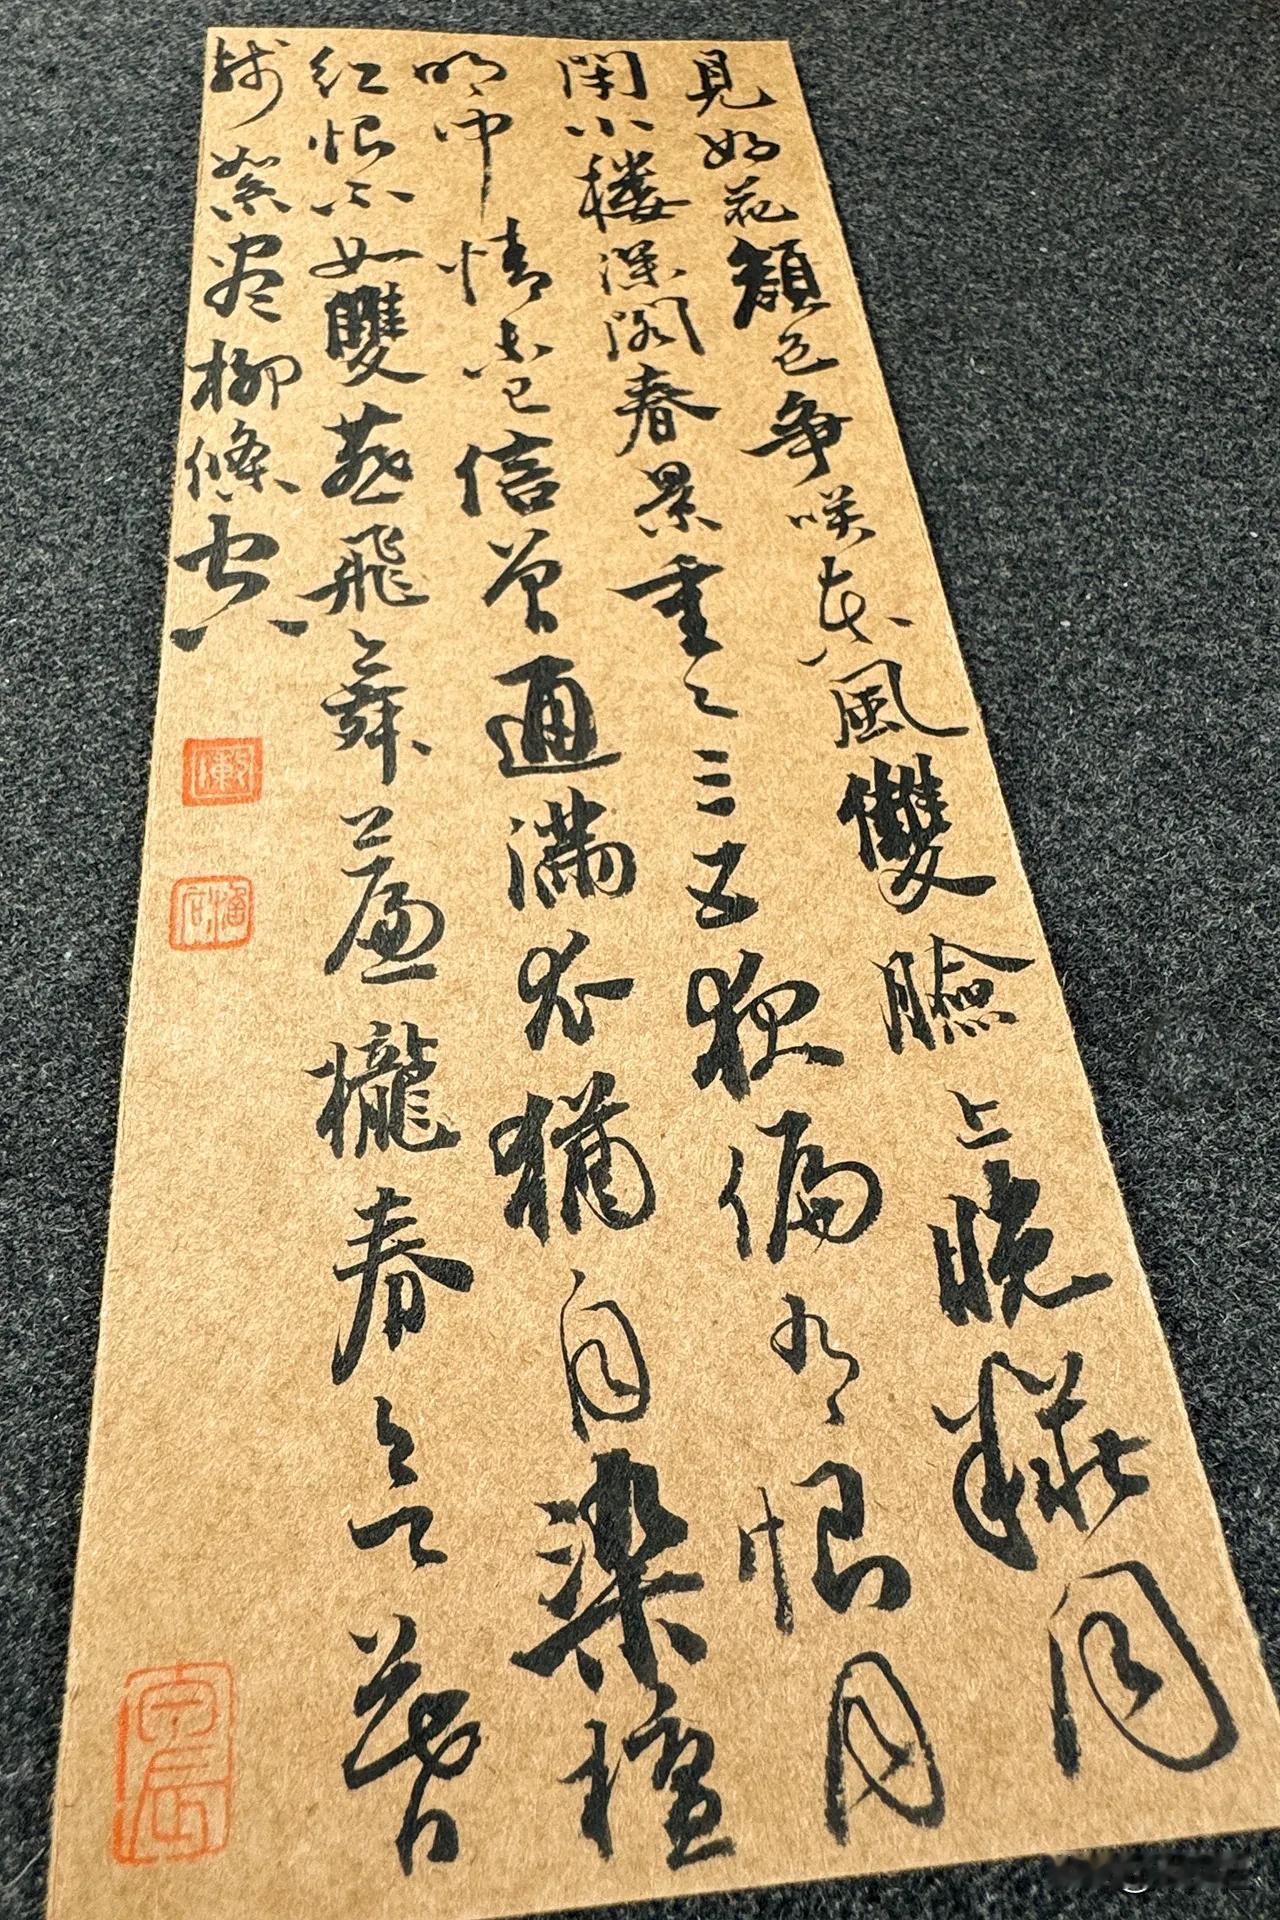 見好花顏色争咲東風雙臉上晚糚同
閑小楼深閣春景重〻三五夜偏有恨月
明中情未已信曾通滿衣猶自染檀
紅恨不如雙燕飛舞簾櫳春欲暮
殘絮尽柳條空